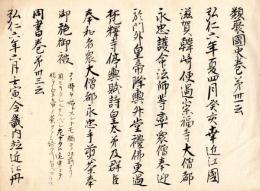 類聚國史卷第卅三云
弘仁六年夏四月癸亥幸近江國
滋賀韓崎便過崇福寺大僧都
永忠護命法師等率衆僧奉迎
於門外皇帝降輿升堂禮佛更過
梵釋寺停輿賦詩皇太弟及群臣
奉和者衆大僧都永忠手自煎茶奉
御施御被
同書卷第卅三云
弘仁六年六月壬寅令畿內近江丹